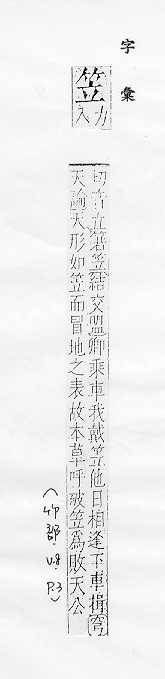 字彙
笠
力入
切音立笠結交盟卿乘車我戴笠他日相逢下車揖穹
天論天形如笠而冒地之表故本草呼破笠為敗天公
(竹部. U8. P.3)